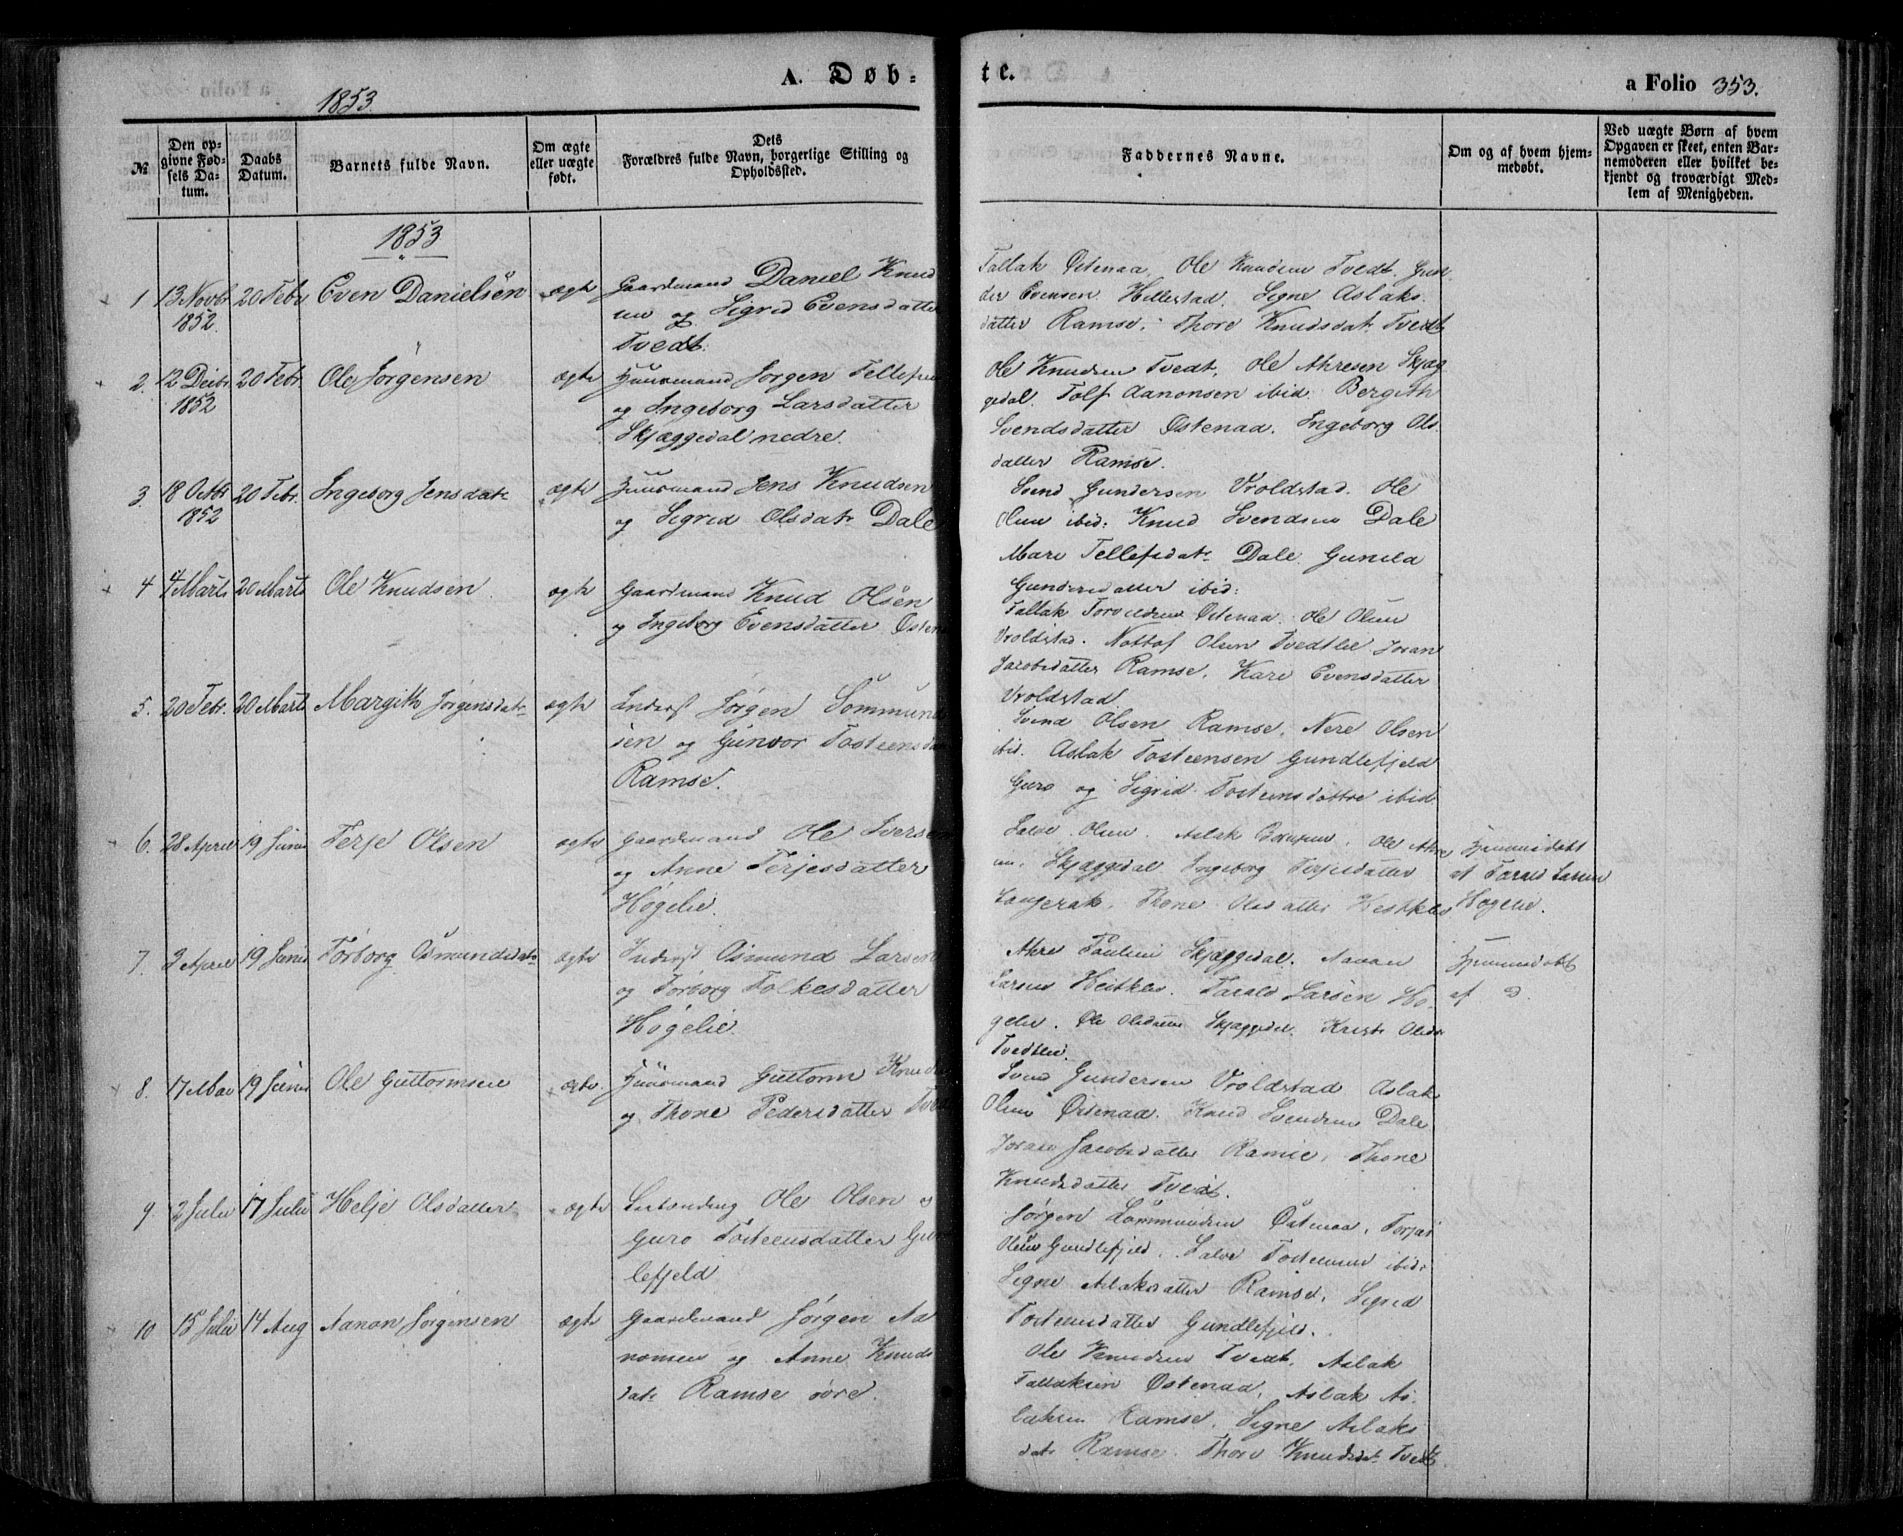 A. Døb-
te.
a Folio 353.
1853.
No
Den op-
givne Fød-
sels Da-
tum.
Daabs
Datum.
Barnets fulde Navn.
Om ægte
eller uægte
født.
Dets
Forældres fulde Navn, borgerlige Stilling og
Opholdssted.
Faddernes Navne.
Om og af hvem hjem-
medøbt.
Ved uægte Børn af hvem
Opgaven er skeet, enten Bar-
nemoderen eller hvilket be-
kjendt og troværdigt Med-
lem af Menigheden.
1853
1
13 Novbr
1852.
20 Febr
Even Danielsen
ægte
Gaardmand Daniel Knud
sen og Sigrid Evensdatter
Tvedt.
Tallak Østenaa. Ole Knudsen Tvedt. Gun
der Evensen Hillestad. Signe Aslaks
datter Ramse. Thore Knudsdatr Tvedt
2.
12 Decbr
1852
20 Febr.
Ole Jørgensen
ægte
Huusmand Jørgen Tellefsen
og Ingeborg Larsdatter
Skjæggedal nedre.
Ole Knudsen Tvedt, Ole Akresen Skjæg
gedal. Tolf Aanonsen ibid. Bergith
Svendsdatter Østenaa. Ingeborg Ols
datter Ramse.
3.
18 Octbr
1852
20 Febr.
Ingeborg Jensdatr
ægte
Huusmand Jens Knudsen
og Sigrid Olsdatr Dale
Svend Gundersen Vroldstad. Ole
Olsen ibid: Knud Svendsen Dale
Mari Tellefsdatr Dale Gunild
Gundersdatter ibid:
4
4 Marts
20 Marts
Ole Knudsen
ægte
Gaardmand Knud Olsen
og Ingeborg Evensdatter Østen
Tallak Torvildsen Østenaa. Ole Olsen
Vroldstad. Nottof Olsen Tvedtlie Joran
Jacobsdatter Ramse. Kari Evensdatter
Vroldstad.
5.
20 Febr.
20 Marts
Margith Jørgensdatr
ægte
Inderst Jørgen Sommund
sen og Gunvor Tosteensda
Ramse.
Svend Olsen Ramse. Nere Olsen
ibid. Aslak Tosteensen Gundlefjeld
Guro og Sigrid Tosteensdøttre ibid
6.
28 April
19 Juni
Terje Olsen
ægte
Gaardmand Ole Iversen
og Anne Terjesdatter
Høgelie.
Salve Olsen. Aslak Ole Akre
sen. Skjæggedal Ingeborg Terjesdatter
Langerak. Thone Olsdatter Heitkles
Hjemmedøbt
af Tarald Larsen
Høgelie.
7.
3 April
19 Juni
Torborg Osmundsdatr
ægte
Inderst Osmund Larsen
og Torborg Folkesdatter
Høgelie.
Akre Paulsen Skjæggedal. Aanon
Larsen Heitkles. Tarald Larsen Hø
gelie. Ole Skjæggedal. Kristi Olsdr
Tvedtlie.
Hjemmedøbt
af do.
8.
17 Mai
19 Juni
Ole Guttormsen
ægte
Huusmand Guttorm Knuds
og Thone Pedersdatter Tved
Svend Gundersen Vroldstad Aslak
Olsen Østenaa. Knud Svendsen Dale
Joran Jacobsdatter Ramse. Thone
Knudsdatter Tvedt.
9
2 Juli
17 Juli
Helje Olsdatter
ægte
Ole Olsen og
Guro Tosteensdatter Gun
lefjeld
Jørgen Sommundsen Østenaa. Torjus
Olsen Gundlefjeld. Salve Tosteensen ibid.
Signe Aslaksdatter Ramse. Sigrid
Tosteensdatter Gundlefjeld.
10
15 Juli
14 Aug
Aanon Jørgensen
ægte
Gaardmand Jørgen Aa
nonsen og Anne Knuds
datr Ramse øvre.
Ole Knudsen Tvedt. Aslak
Tallaksen Østenaa. Aslak As-
laksen Ramse. Signe Aslaks
datr Ramse. Thore Knudsdatr Tvedt.